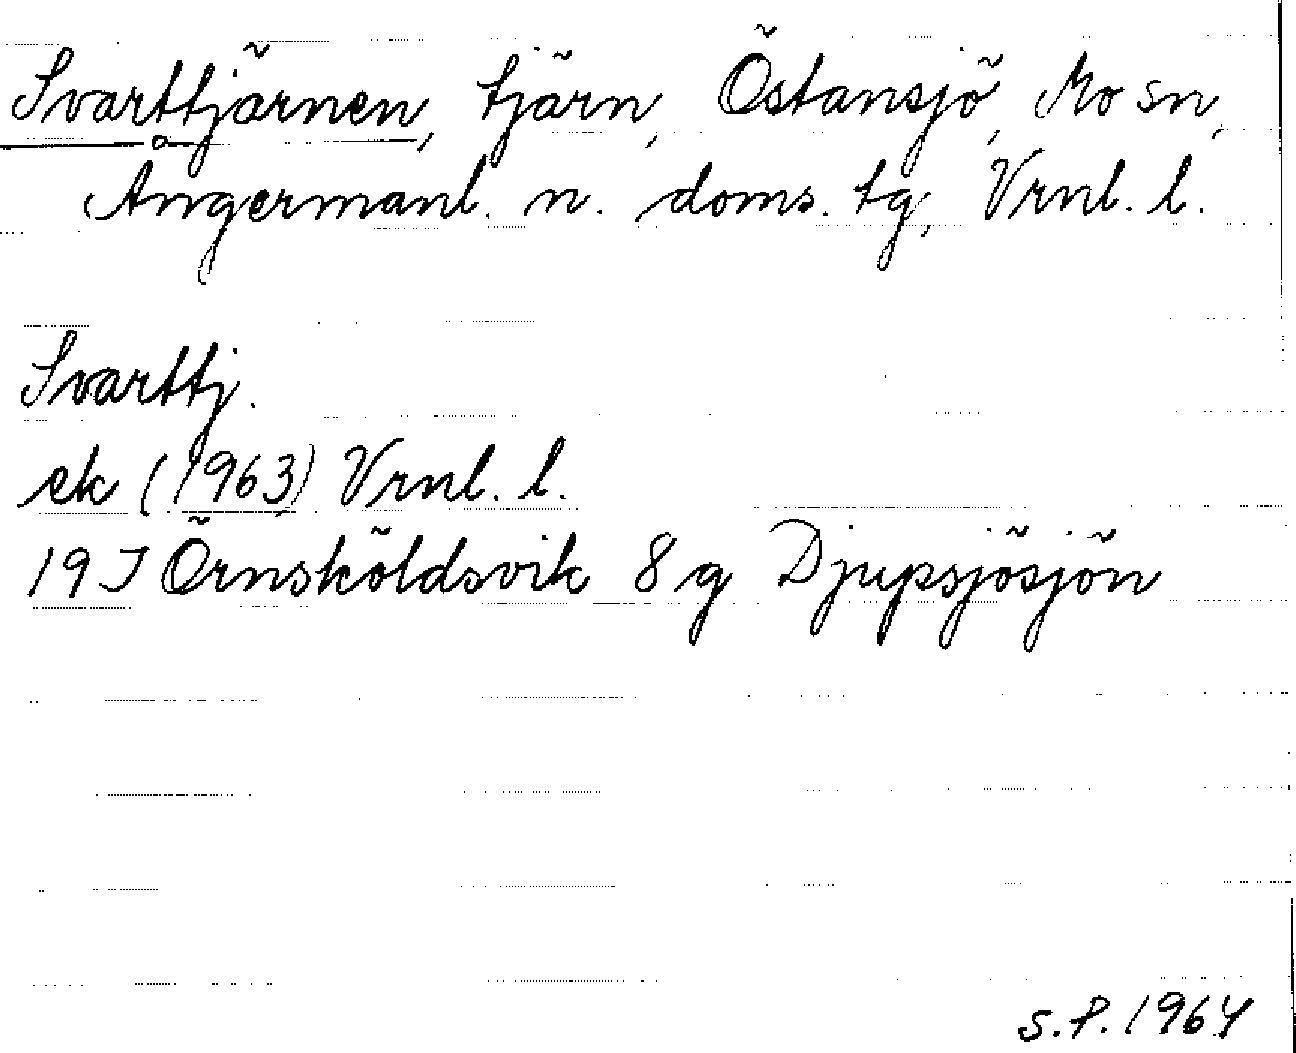 Svarttjärnen, tjärn, Östansjö, Mo sn,
Ångermanl. n. doms. tg, Vrnl. l.
Svarttj.
ek (1963) Vrnl. l.
19 J Örnsköldsvik 8 g Djupsjösjön
S.P. 1964